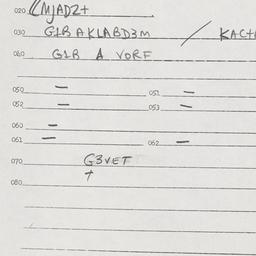 020 ((MJADZ+
030 G1B A KLABD3M / KACTA
040 G1B A VORF
050 — 051 —
052 — 053 —
060 —
061 — 062 —
070 G3VET
+
080